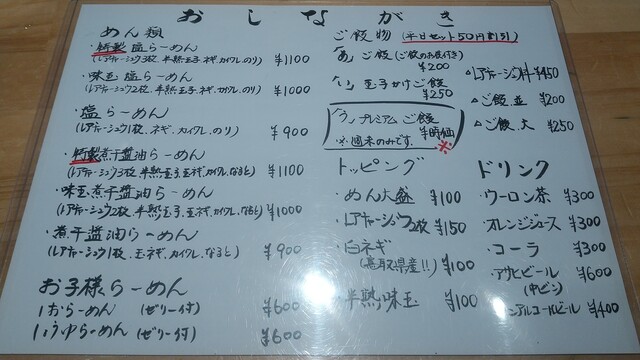 おしながき
めん類
・特製 塩らーめん ¥1100
(レアチャーシュウ3枚、半熟玉子、ネギ、カイワレ、のり)
・味玉 塩らーめん ¥1000
(レアチャーシュウ2枚、半熟玉子、ネギ、カイワレ、のり)
・塩らーめん ¥900
(レアチャーシュウ1枚、ネギ、カイワレ、のり)
・特製煮干醤油らーめん ¥1100
(レアチャーシュウ3枚、半熟玉子、玉ネギ、カイワレ、なると)
・味玉煮干醤油らーめん ¥1000
(レアチャーシュウ2枚、半熟玉子、玉ネギ、カイワレ、なると)
・煮干醤油らーめん ¥900
(レアチャーシュウ1枚、玉ネギ、カイワレ、なると)
お子様らーめん
しおらーめん (ゼリー付) ¥600
しょうゆらーめん (ゼリー付) ¥600
ご飯物 (平日セット50円割引)
「あ」ご飯 (ご飯のお供付き) ¥200
「い」玉子かけご飯 ¥250
「う」プレミアムご飯 ¥時価
※週末のみです。 ※
△レアチャーシュウ丼 ¥450
△ご飯 並 ¥200
△ご飯 大 ¥250
トッピング
・めん大盛 ¥100
・レアチャーシュウ2枚 ¥150
・白ネギ ¥100
(鳥取県産!!)
・半熟味玉 ¥100
ドリンク
・ウーロン茶 ¥300
・オレンジジュース ¥300
・コーラ ¥300
・アサヒビール ¥600
(中ビン)
ノンアルコールビール ¥400